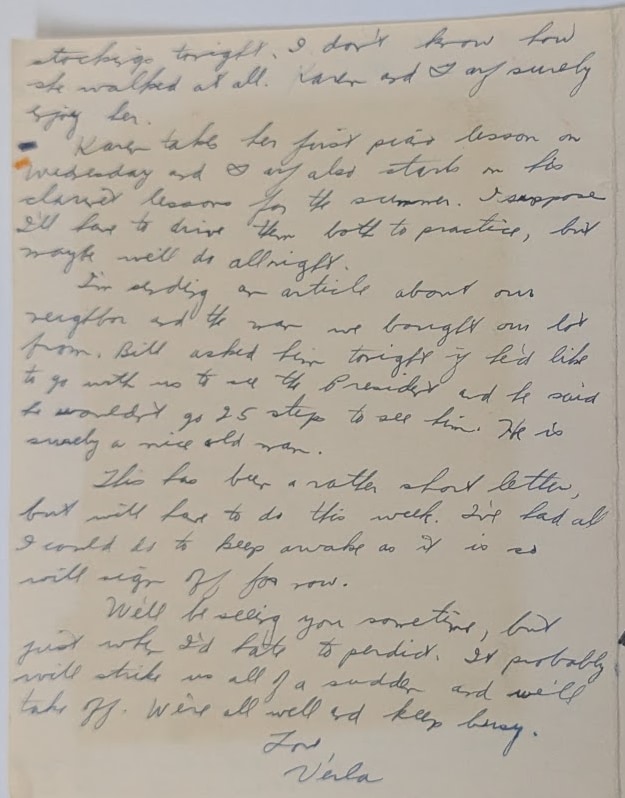 stockings tonight. I don't know how
she walked at all. Karen and I surely
enjoy her.
Karen takes her first piano lesson on
Wednesday and also starts on his
clarinet lessons for the summer. I suppose
I'll have to drive them both to practice, but
maybe we'll do allright.
I'm sending an article about our
neighbor and the man we bought our lot
from. Bill asked him tonight if he'd like
to go with us to see the President and he said
he wouldn't go 25 steps to see him. He is
surely a nice old man.
This has been a rather short letter,
but will have to do this week. I've had all
I could do to keep awake as it is so
will sign off for now.
We'll be seeing you sometime, but
just when I'd hate to perdict. It probably
will strike us all of a sudden and we'll
take off. We're all well and keep busy.
Love,
Verla